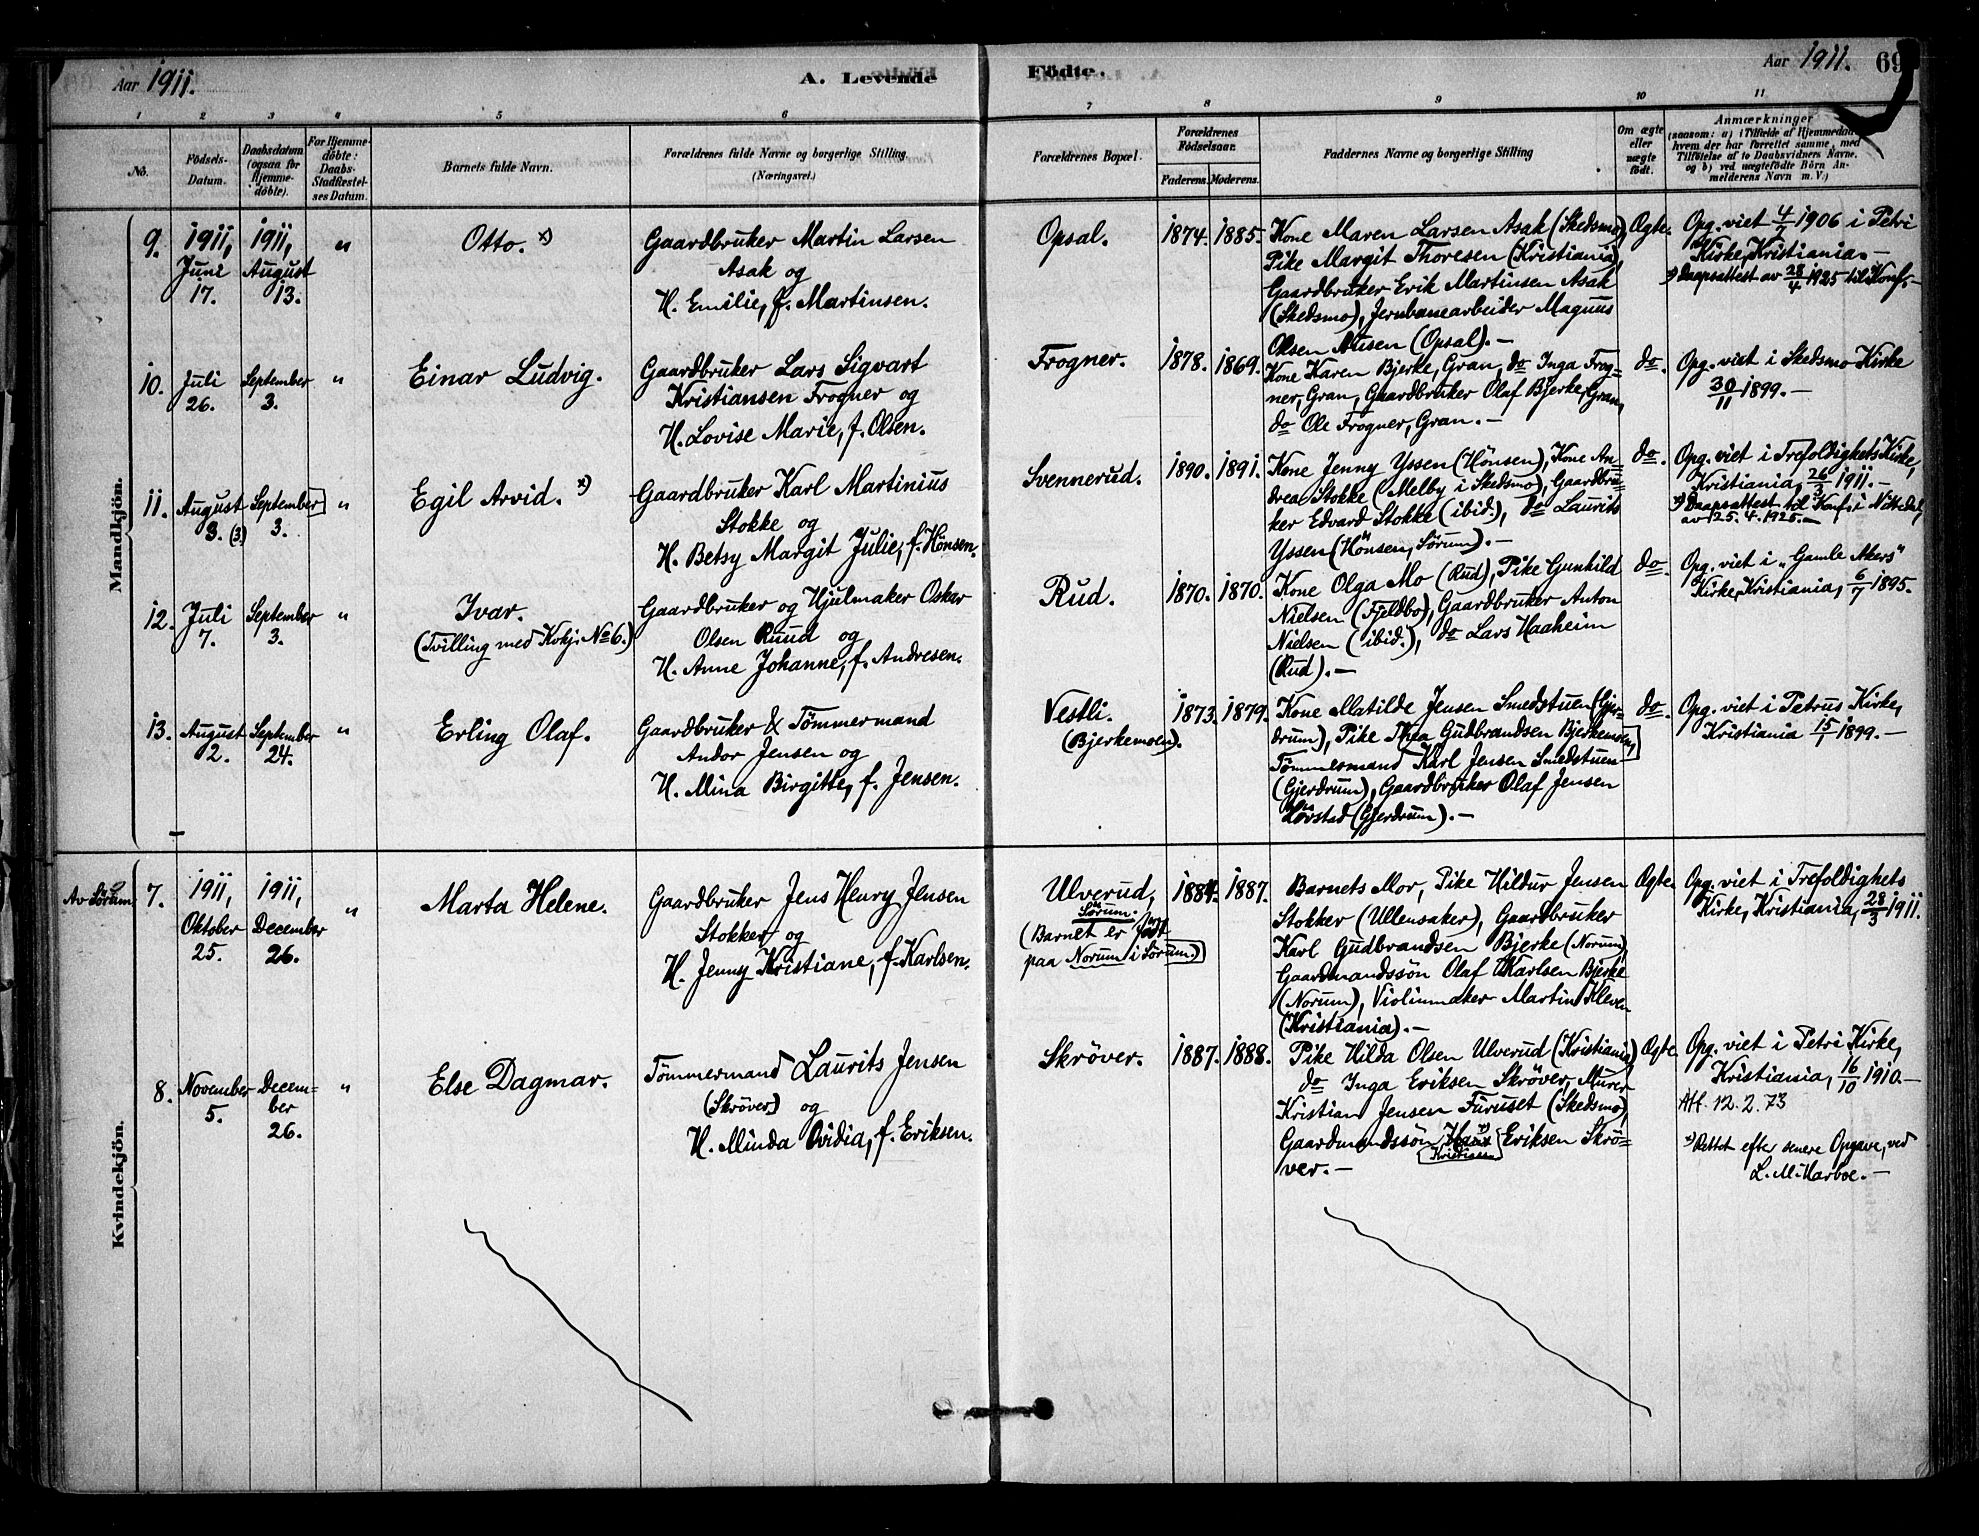 Aar 1911.
A. Levende
Födte.
Aar 1911.
69
1 2 3 4 5 6 7 8 9 10 11
No.
Födsels-
Datum.
Daabsdatum
(ogsaa for
Hjemme-
döbte).
For Hjemme-
döbte:
Daabs-
Stadfæstel-
ses Datum.
Barnets fulde Navn.
Forældrenes fulde Navne og borgerlige Stilling
(Næringsvei.)
Forældrenes Bopæl.
Forældrenes
Födselsaar.
Faderens. Moderens.
Faddernes Navne og borgerlige Stilling
Om ægte
eller
uægte
födt.
Anmærkninger
(saasom: a) i Tilfælde af Hjemmedaab,
hvem der har forrettet samme, med
Tilföielse af to Daabsvidners Navne,
og b) ved uægtefödte Börn An-
melderens Navn m. V.)
Mandkjön.
9.
1911,
Juni
17.
1911,
August
13.
"
Otto. x)
Gaardbruker Martin Larsen
Asak og
H. Emilie, f. Martinsen.
Opsal.
1874. 1885.
Kone Maren Larsen Asak (Skedsmo)
Pike Margit Thoresen (Kristiania),
Gaardbruker Erik Martinsen Asak
(Skedsmo), Jernbanearbeider Magnus
Olsen (Opsal). —
Ægte.
Opg. viet 4/7 1906 i Petri
Kirke, Kristiania. —
x) Daapsattest av 28/4 1925 til Konf. —
10.
Juli
26.
September
3.
"
Einar Ludvig.
Gaardbruker Lars Sigvart
Kristiansen Frogner og
H. Lovise Marie, f. Olsen.
Frogner.
1878. 1869.
Kone Karen Bjerke, Gran, do Inga Frog=
ner, Gran, Gaardbruker Olaf Bjerke, Gran,
do Ole Frogner, Gran. —
do.
Opg. viet i Skedsmo Kirke
30/11 1899. —
11.
August
3. (3.)
September
3.
"
Egil Arvid. x)
Gaardbruker Karl Martinius
Stokke og
H. Betsy Margit Julie, f. Hönsen.
Svennerud.
1890. 1891.
Kone Jenny Yssen (Hönsen), Kone An=
drea Stokke (Melby i Skedsmo), Gaardbru=
ker Edvard Stokke (ibid.), do Laurits
Yssen (Hönsen, Sörum). —
do.
Opg. viet i Trefoldighets Kirke,
Kristiania, 26/3 1911. —
x) Daapsattest til Konf. i Nittedal,
av 25. 4. 1925. —
12.
Juli
7.
September
3.
"
Ivar.
(Tvilling med Kvkj. No 6.)
Gaardbruker og Hjulmaker Oskar
Olsen Ruud og
H. Anne Johanne, f. Andresen.
Rud.
1870. 1870.
Kone Olga Mo (Rud), Pike Gunhild
Nielsen (Fjeldbo), Gaardbruker Anton
Nielsen (ibid.), do Lars Haaheim
(Rud). —
do.
Opg. viet i „Gamle Akers"
Kirke, Kristiania, 6/7 1895.
13.
August
2.
September
24.
"
Erling Olaf.
Gaardbruker & Tömmermand
Andor Jensen og
H. Mina Birgitte, f. Jensen.
Vestli.
(Bjerkemoen).
1873. 1879.
Kone Matilde Jensen Smedstuen (Gjer-
drum), Pike Thea Gudbrandsen Bjerkemoen,
Tömmermand Karl Jensen Smedstuen
(Gjerdrum), Gaardbruker Olaf Jensen
Lövstad (Gjerdrum). —
do.
Opg. viet i Petrus Kirke,
Kristiania 15/1 1899. —
Kvindekjön.
Av Sörum
7.
1911,
Oktober
25.
1911,
December
26.
"
Marta Helene.
Gaardbruker Jens Henry Jensen
Stokker og
H. Jenny Kristiane, f. Karlsen.
Ulverud,
Sörum.
(Barnet er födt
paa Norum i Sörum.)
1884. 1887.
Barnets Mor, Pike Hildur Jensen
Stokker (Ullensaker), Gaardbruker
Karl Gudbrandsen Bjerke (Norum),
Gaardmandssön Olaf Karlsen Bjerke
(Norum), Violinmaker Martin Kleven
(Kristiania). —
Ægte.
Opg. viet i Trefoldighets
Kirke, Kristiania, 28/3 1911.
8.
November
5.
Decem-
ber
26.
"
Else Dagmar.
Tömmermand Laurits Jensen
(Skröver) og
H. Minda Ovidia, f. Eriksen.
Skröver.
1887. 1888.
Pike Hilda Olsen Ulverud (Kristiania),
do Inga Eriksen Skröver, Murer
Kristian Jensen Furuset (Skedsmo),
Gaardmandssön Hans x) Eriksen Skrö=
Kristian
ver. —
Ægte.
Opg. viet i Petri Kirke,
Kristiania, 16/10 1910. —
Att. 12. 2. 73
x) Rettet efter senere Opgave, ved
L. M. Harboe. —